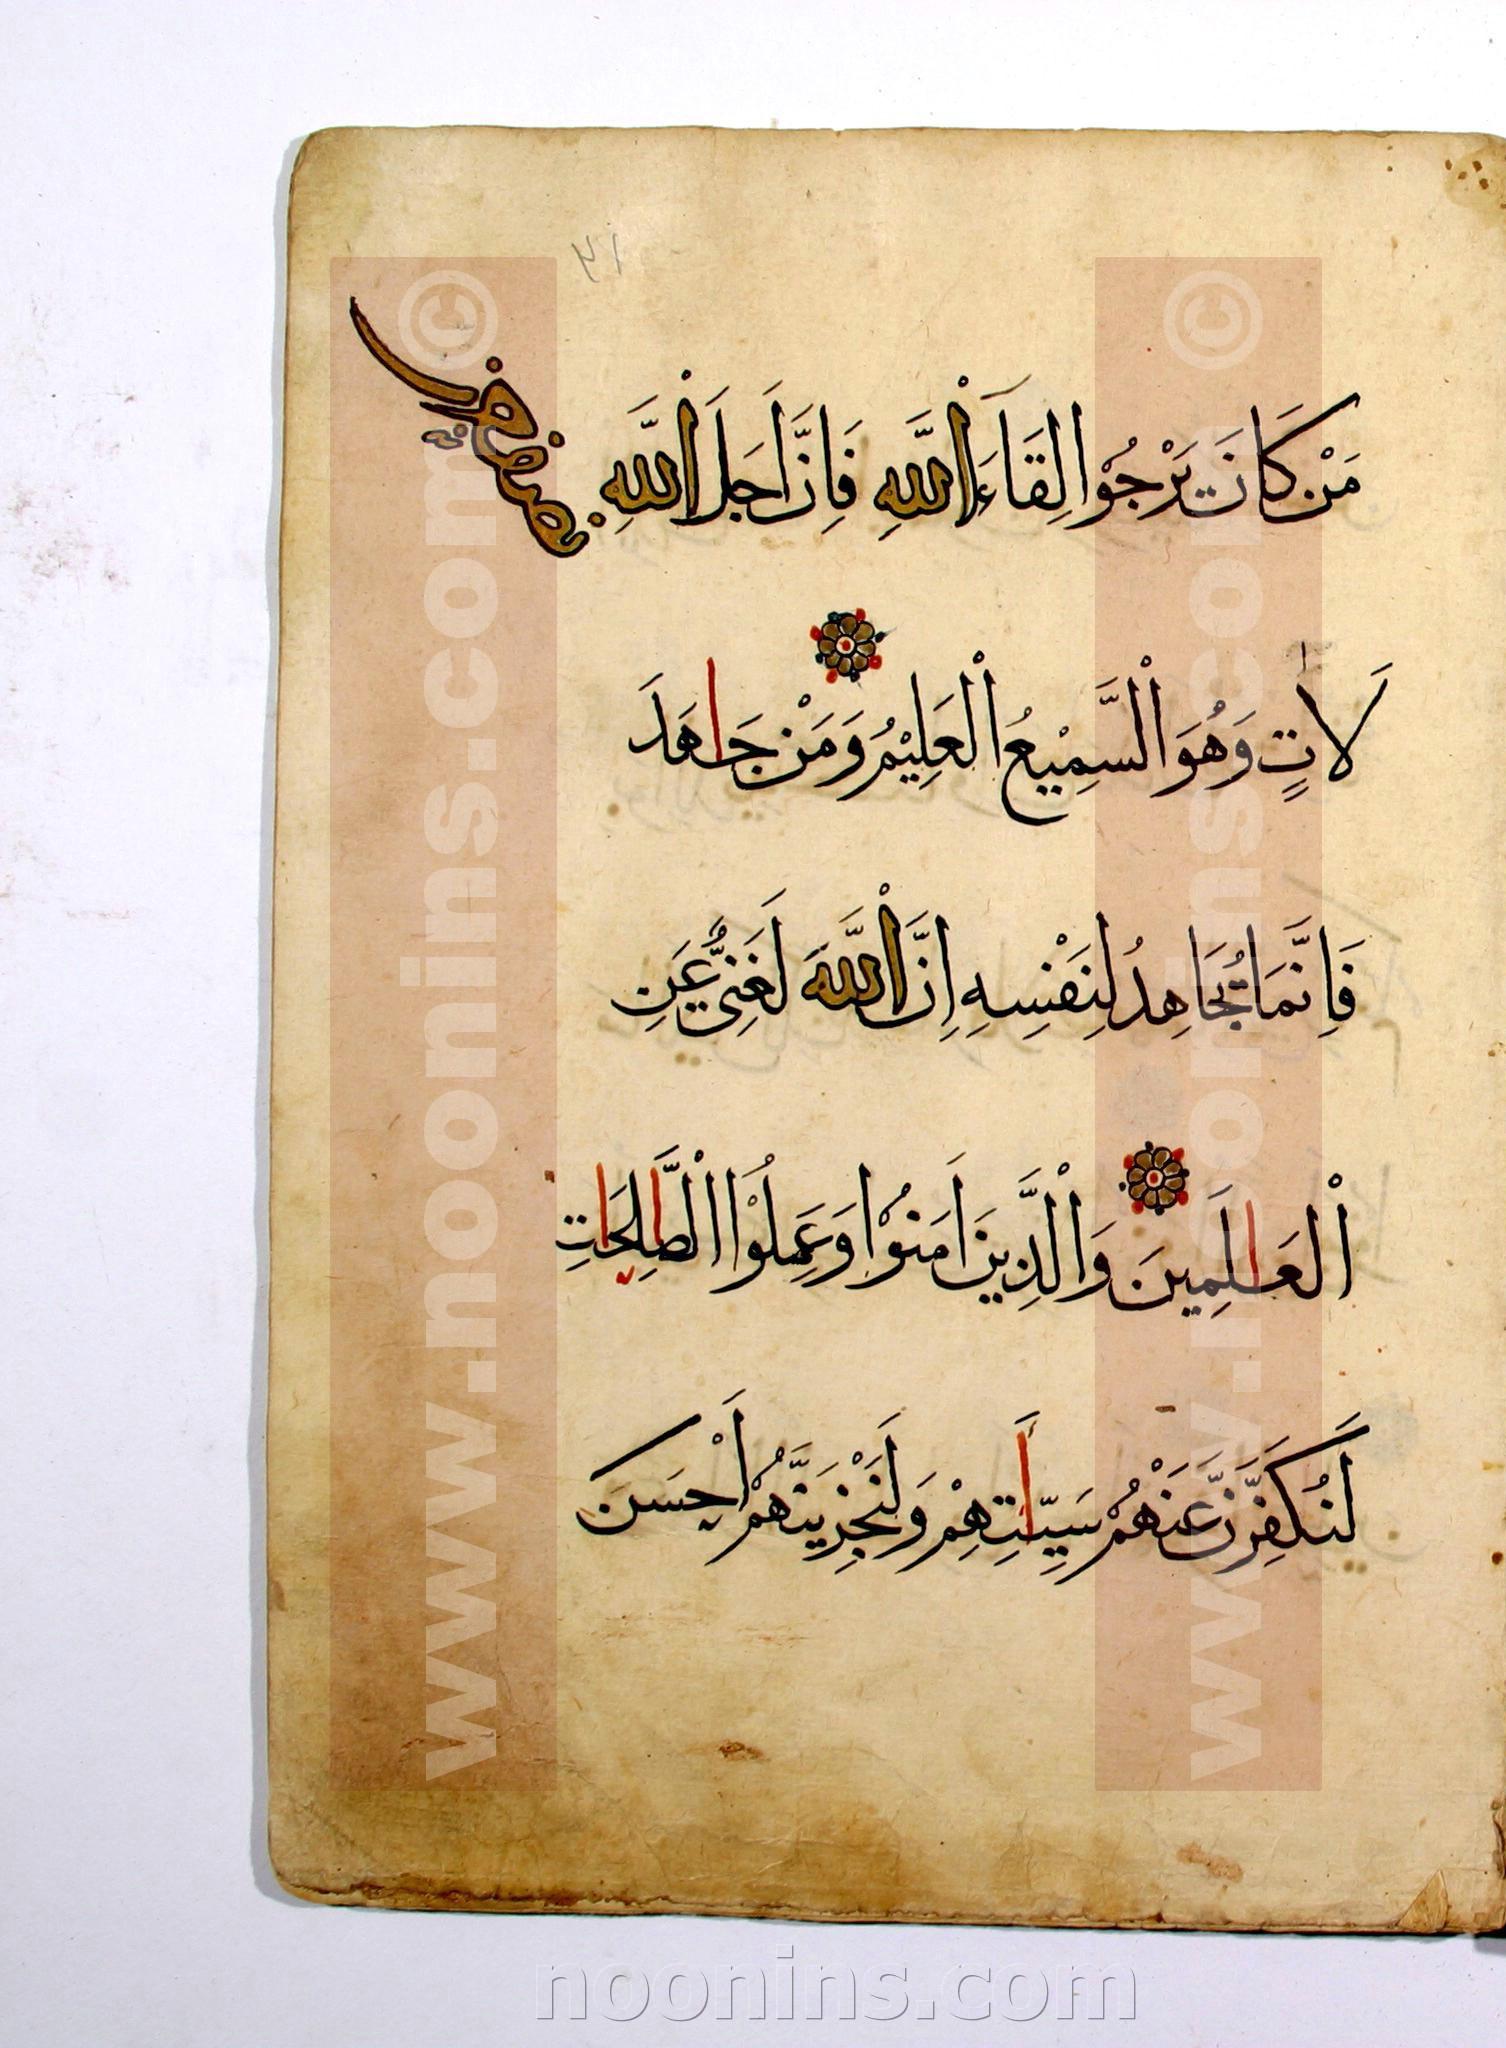 ١٦
مَنْ كَانَ يَرْجُوا لِقَآءَ اللَّهِ فَاِنَّ اَجَلَ اللَّهِ
لَاٰتٍ وَهُوَ الْسَّمِيْعُ الْعَلِيْمُ وَمَنْ جَاهَدَ
فَاِنَّمَا يُجَاهِدُ لِنَفْسِهِ اِنَّ اللَّهَ لَغَنِىٌّ عَنِ
الْعَالَمِينَ وَالَّذِينَ اَمَنُوْا وَعَمِلُوْا الْصَّالِحَاتِ
لَنُكَفِّرَنَّ عَنْهُمْ سَيِّأَتِهِمْ وَلَنَجْزِيَنَّهُمْ اَحْسَنَ
www.noonins.com ©
www.noonins.com ©
noonins.com